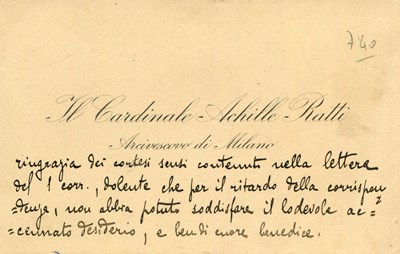 740
Il Cardinale Achille Ratti
Arcivescovo di Milano
ringrazia dei cortesi sensi contenuti nella lettera
del 1 corr., dolente che per il ritardo della corrispon=
=denza, non abbia potuto soddisfare il lodevole ac=
=cennato desiderio, e ben di cuore benedice.